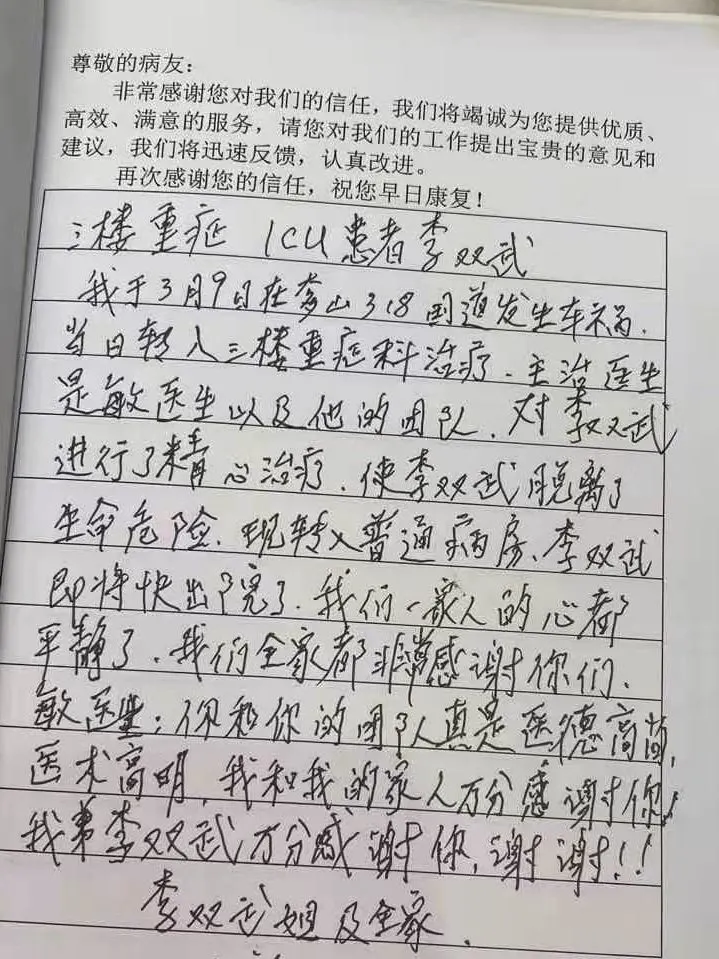 尊敬的病友：
非常感谢您对我们的信任，我们将竭诚为您提供优质、
高效、满意的服务，请您对我们的工作提出宝贵的意见和
建议，我们将迅速反馈，认真改进。
再次感谢您的信任，祝您早日康复！
三楼重症 ICU患者李双武
我于3月9日在 山318国道发生车祸.
当日转入三楼重症科治疗.主治医生
是敏医生以及他的团队.对李双武
进行了精心治疗.使李双武脱离了
生命危险.现转入普通病房、李双武
即将快出院了.我们一家人的心都
平静了.我们全家都非常感谢你们.
敏医生：你和你的团队真是医德高尚,
医术高明.我和我的家人万分感谢你!
我弟李双武万分感谢你.谢谢!!
李双武姐及全家.